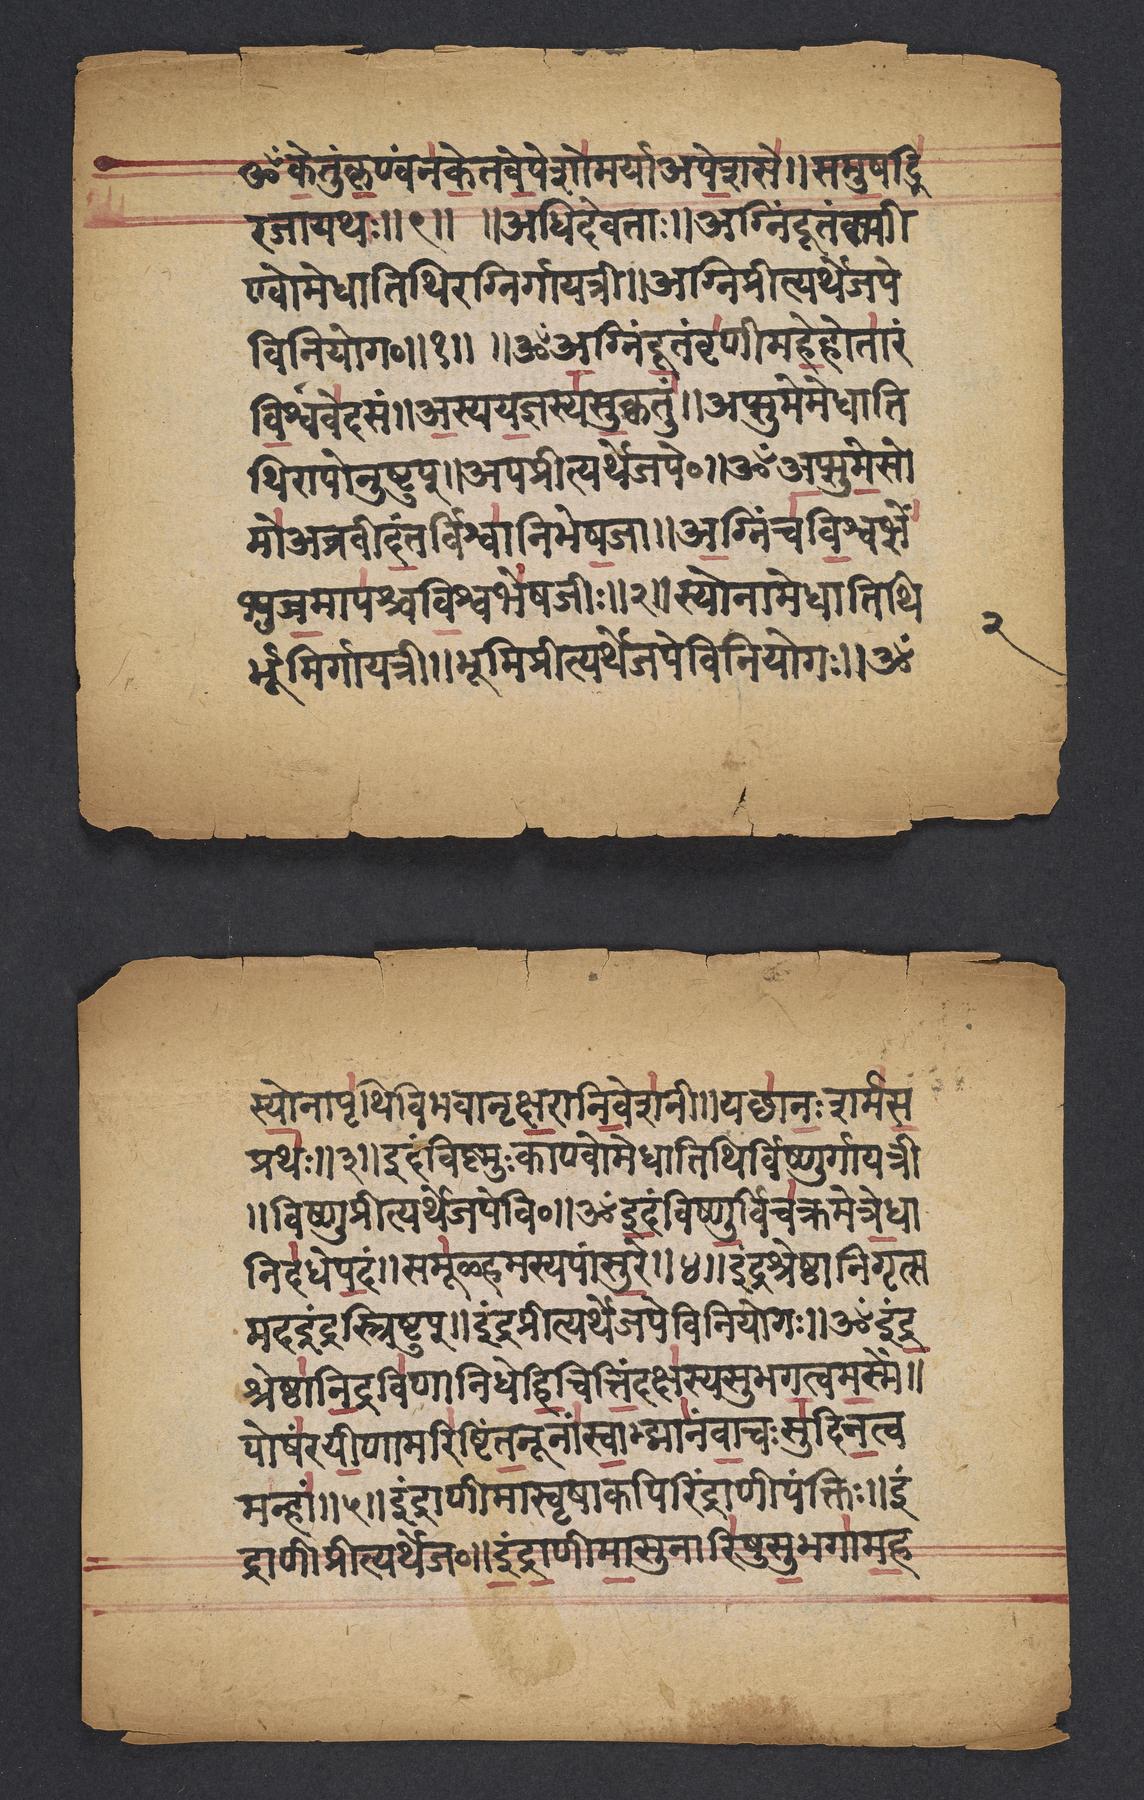 ॐकेतुंकृण्वंनकेतवेपेशोमर्याअपेशसे॥समुषद्भि
रजायथः॥९॥ ॥अधिदेवताः॥अग्निंदूतंकाणी
ण्वोमेधातिथिरग्निर्गायत्री॥अग्निप्रीत्यर्थेजपे
विनियोग०॥१॥ ॥ॐअग्निंदूतंवृणीमहेहोतारं
विश्ववेदसं॥अस्ययज्ञस्यसुक्रतुं॥अप्सुमेमेधाति
थिरापोनुष्टुप्॥अपप्रीत्यर्थेजपे०॥ॐअप्सुमेसो
मोअब्रवीदंतर्विश्वानिभेषजा॥अग्निंचविश्वशं
भुवमापश्चविश्वभेषजीः॥२॥स्योनामेधातिथि
र्भूमिर्गायत्री॥भूमिप्रीत्यर्थेजपेविनियोगः॥ॐ
२
स्योनापृथिविभवानृक्षरानिवेशनी॥यछानःशर्मस
प्रथः॥३॥इदंविष्णुःकाण्वोमेधातिथिर्विष्णुर्गायत्री
॥विष्णुप्रीत्यर्थेजपेवि०॥ॐइदंविष्णुर्विचक्रमेत्रेधा
निदधेपदं॥समूळ्हमस्यपांसुरे॥४॥इंद्रश्रेष्ठानिगृत्स
मदइंद्रस्त्रिष्टुप्॥इंद्रप्रीत्यर्थेजपेविनियोगः॥ॐइंद्र
श्रेष्ठानिद्रविणानिधेहिचित्तिंदक्षस्यसुभगत्वमस्मे॥
पोषंरयीणामरिष्टिंतनूनांस्वाद्मानंवाचःसुदिनत्व
मन्हां॥५॥इंद्राणीमास्वृषाकपिरिंद्राणीपंक्तिः॥इं
द्राणीप्रीत्यर्थेज०॥इंद्राणीमासुनारिषुसुभगामह